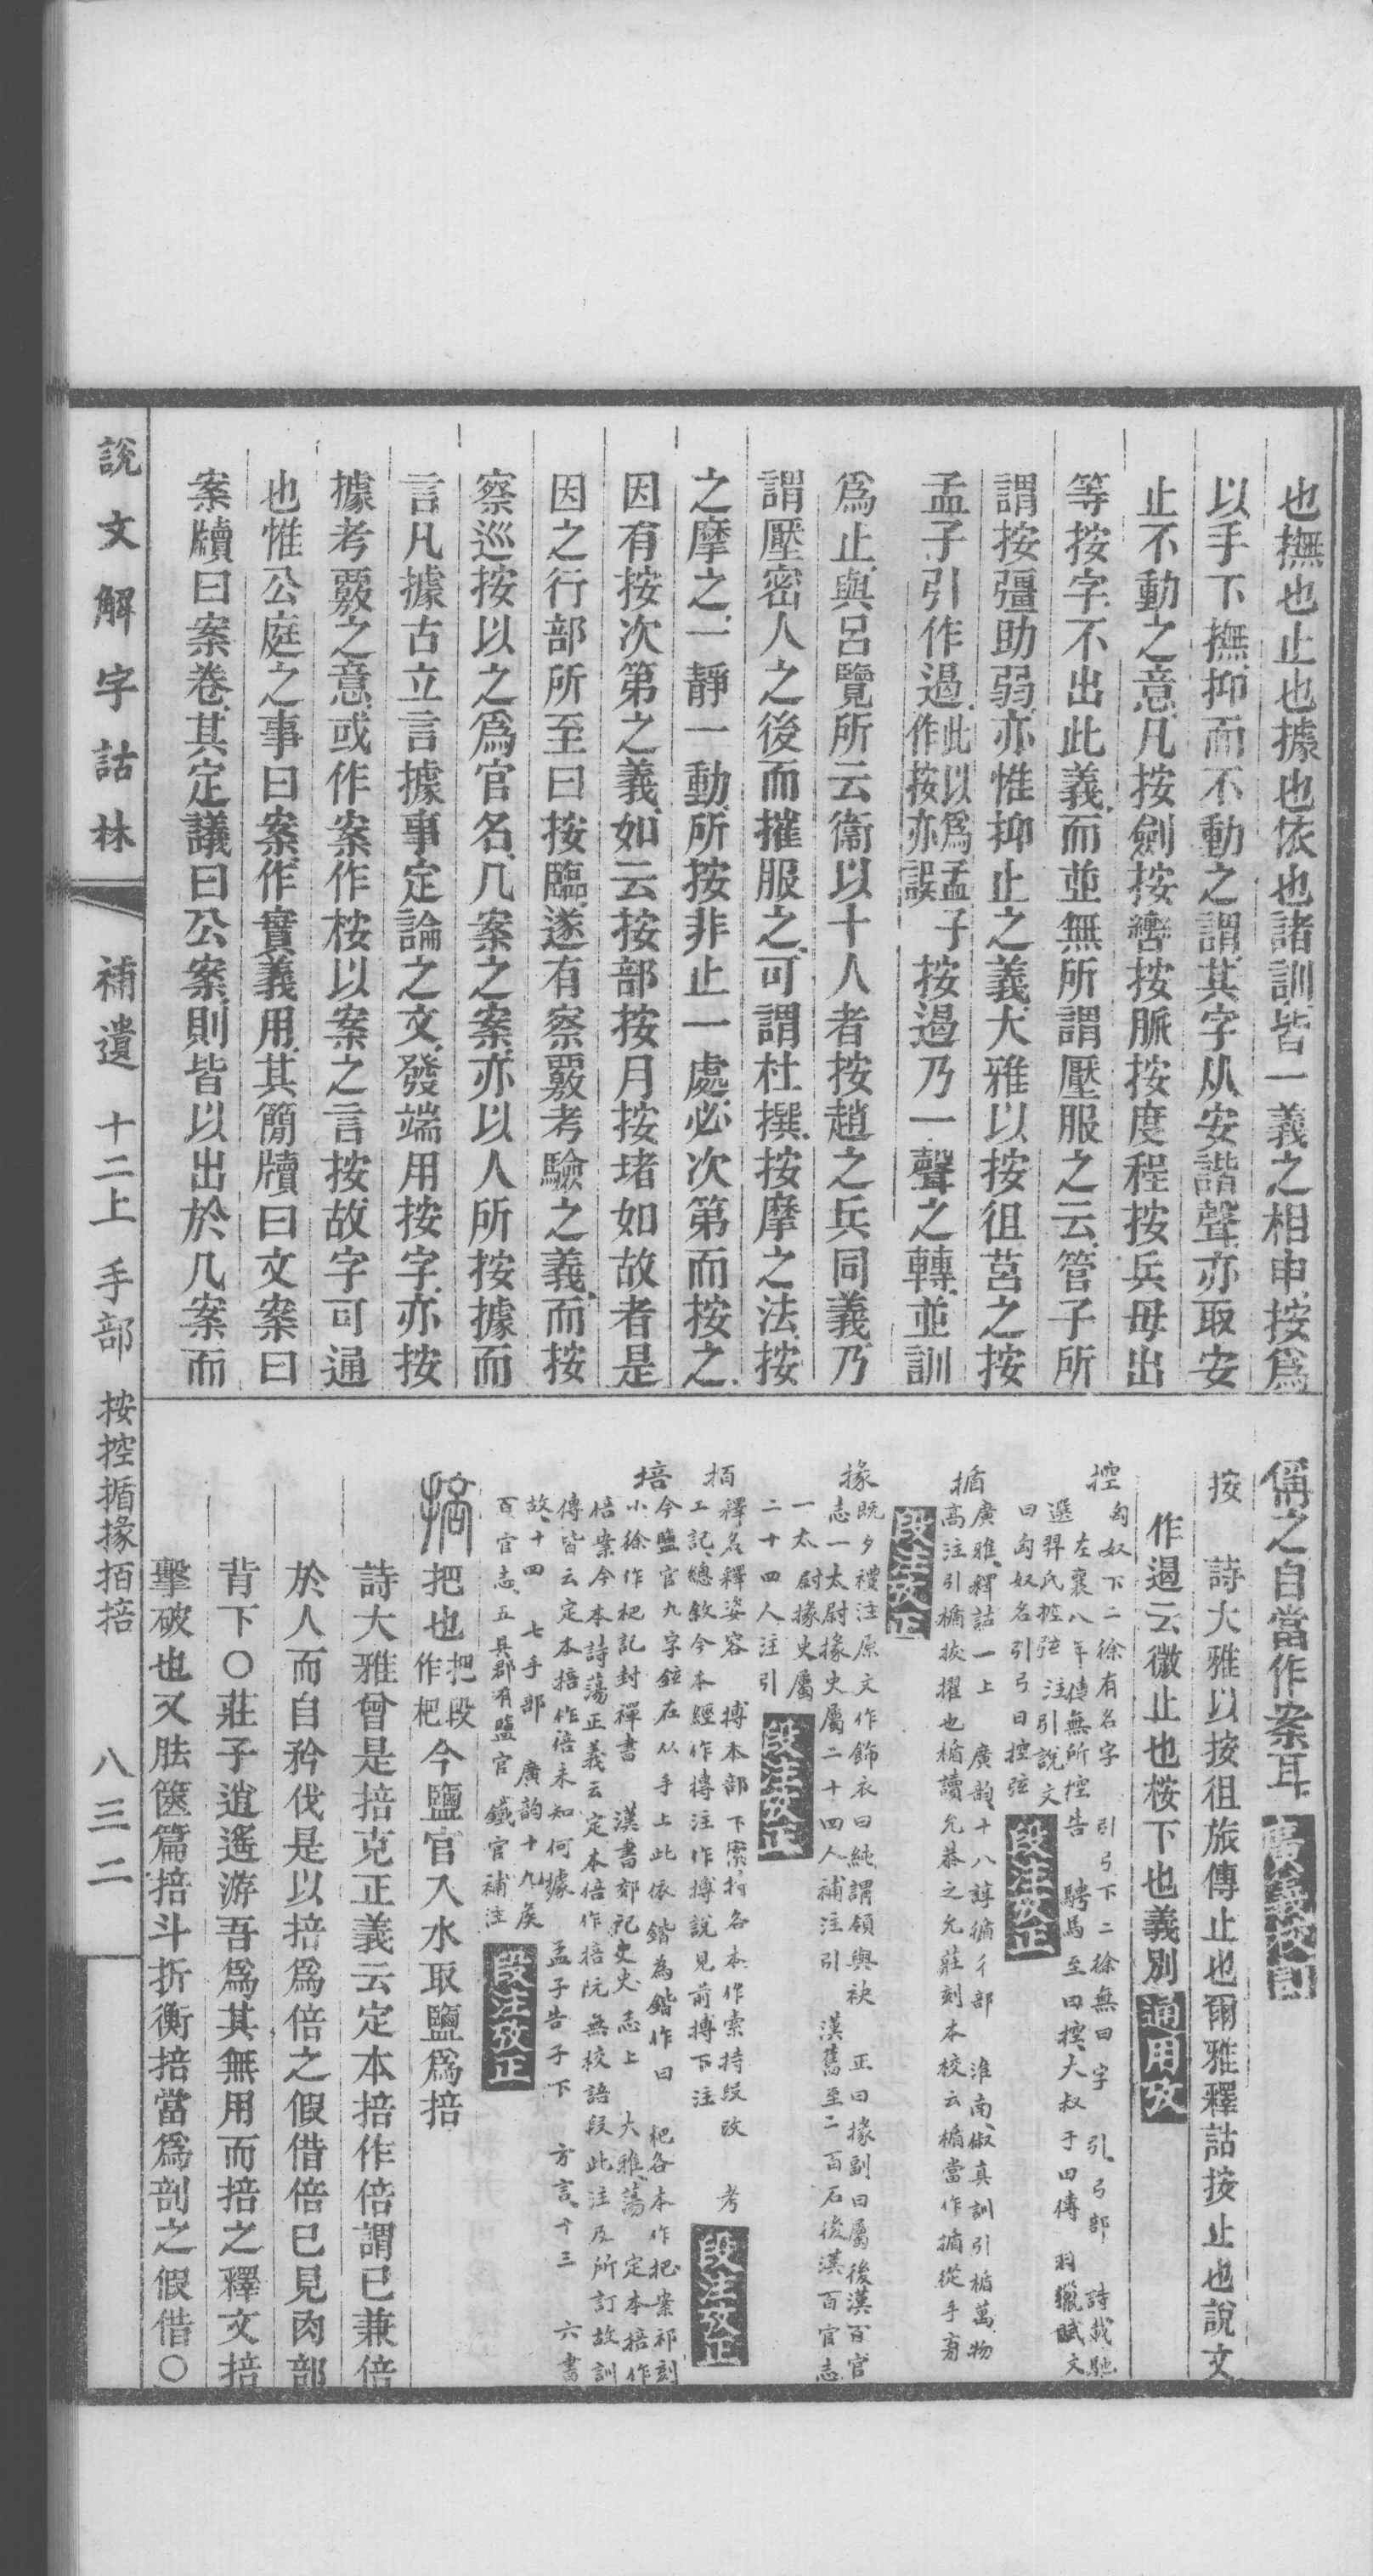 也撫也止也據也依也諸訓皆一義之相申按爲
以手下撫抑而不動之謂其字从安諧聲亦取安
止不動之意凡按劍按轡按脈按度程按兵毋出
等按字不出此義而並無所謂壓服之云管子所
謂按彊助弱亦惟抑止之義大雅以按徂莒之按
孟子引作遏此以爲孟子作按亦誤按遏乃一聲之轉並訓
爲止與呂覽所云衞以十人者按趙之兵同義乃
謂壓密人之後而摧服之可謂杜撰按摩之法按
之摩之一靜一動所按非止一處必次第而按之
因有按次第之義如云按部按月按堵如故者是
因之行部所至曰按臨遂有察覈考驗之義而按
察巡按以之爲官名几案之案亦以人所按據而
言凡據古立言據事定論之文發端用按字亦按
據考覈之意或作案作桉以案之言按故字可通
也惟公庭之事曰案作實義用其簡牘曰文案曰
案牘曰案卷其定議曰公案則皆以出於几案而
偁之自當作案耳
按 詩大雅以按徂旅傳止也爾雅釋詁按止也說文
作遏云微止也桉下也義別 通用攷
控 匈奴下二徐有名字 引弓下二徐無曰字 引弓部 詩載馳
左襄八年傳無所控告 騁馬至曰控大叔于田傳 羽獵賦文
選羿氏控弦注引說文
曰匈奴名引弓曰控弦 段注攷正
揗 廣雅釋詁一上 廣韵十八諄揗彳部 淮南俶真訓引楯萬物
高注引楯拔擢也楯讀允恭之允莊刻本校云楯當作揗從手旁
段注攷正
掾 既夕禮注原文作飾衣曰純謂領與袂 正曰掾副曰屬後漢百官
志一太尉掾史屬二十四人補注引 漢舊至二百石後漢百官志
一太尉掾史屬
二十四人注引 段注攷正
拍 釋名釋姿容 搏本部下案拊各本作索持段改 考
工記總敘今本經作搏注作搏說見前搏下注 段注攷正
掊 今鹽官九字鉉在从手上此依鍇為鍇作曰 杷各本作把案祁刻
小徐作杷記封禪書 漢書郊祀志上 大雅蕩 定本掊作
倍案今本詩蕩正義云定本倍作掊阮無校語段此注及所訂故訓
傳皆云定本掊作倍未知何據 孟子告子下 方言十三 六書
故十四 七手部 廣韵十九矦
百官志五具郡有鹽官鐵官補注 段注攷正
掊 把也把段作杷今鹽官入水取鹽爲掊
詩大雅曾是掊克正義云定本掊作倍謂已兼倍
於人而自矜伐是以掊爲倍之假借倍已見肉部
背下○莊子逍遙游吾爲其無用而掊之釋文掊
擊破也又胠篋篇掊斗折衡掊當爲剖之假借○
說文解字詁林 補遺 十二上 手部 按控揗掾拍掊 八三二